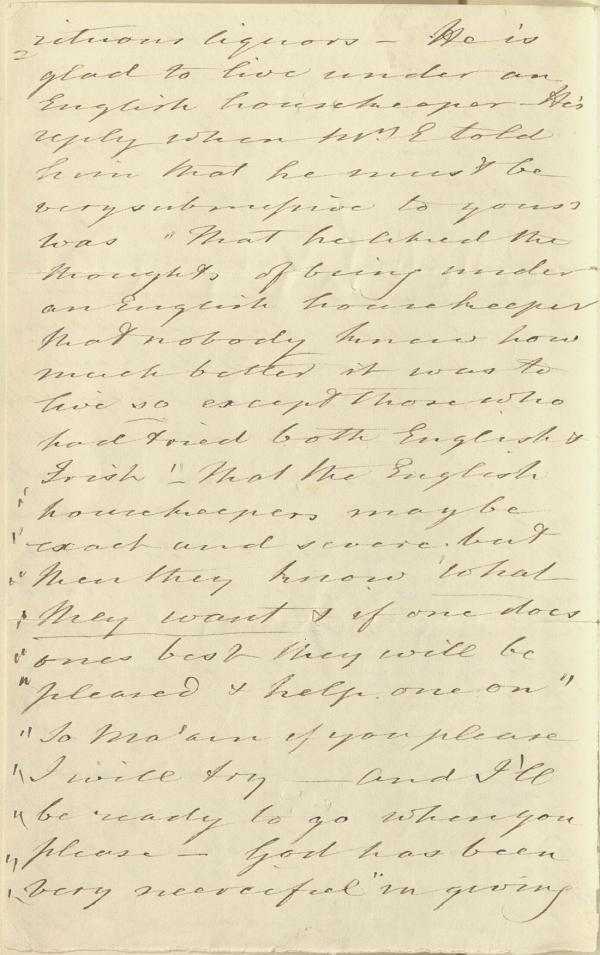 rituous liquors – He is
glad to live under an
English housekeeper – His
reply when Mrs E told
him that he must be
very submissive to yours
was "That he liked the
thoughts of being under
an English housekeeper
that nobody knew how
much better it was to
live so except those who
had tried both English &
Irish" – That the English
" housekeepers may be
" exact and severe but
" then they know what
" they want & if one does
" ones best they will be
" pleased & help one on"
" So Ma'am if you please
" I will try — and I'll
" be ready to go when you
" please – God has been
" very merciful" in giving